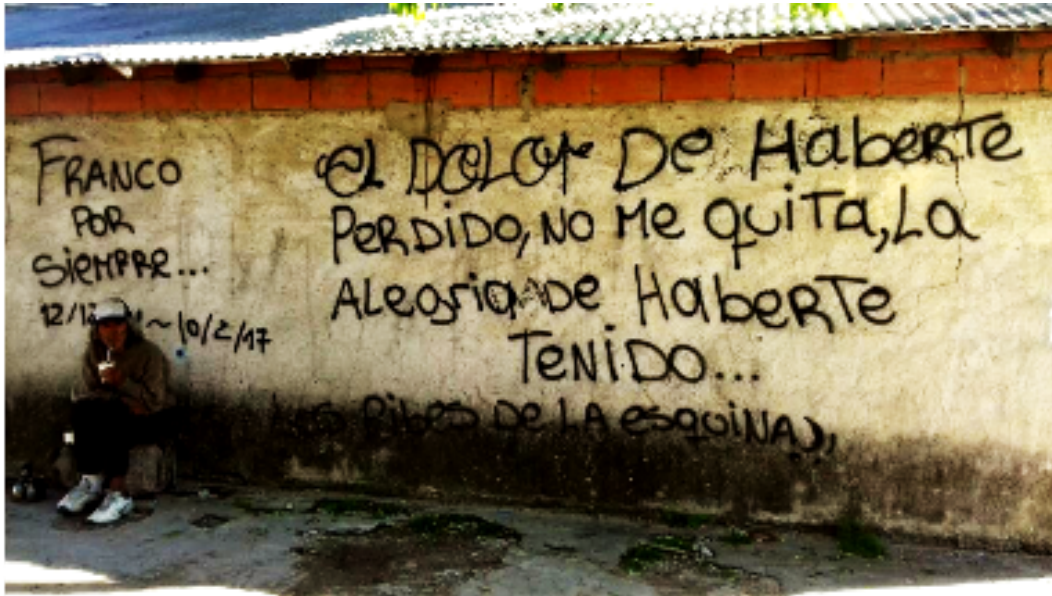 FRANCO
POR
SIEMPRE...
12/12 ~ 10/2/17
EL DOLOR DE HABERTE
PERDIDO, NO ME QUITA, LA
ALEGRIA DE HABERTE
TENIDO...
LOS PIBES DE LA ESQUINA